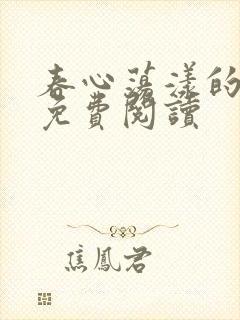 春心蕩漾的
免費閱讀
焦鳳君